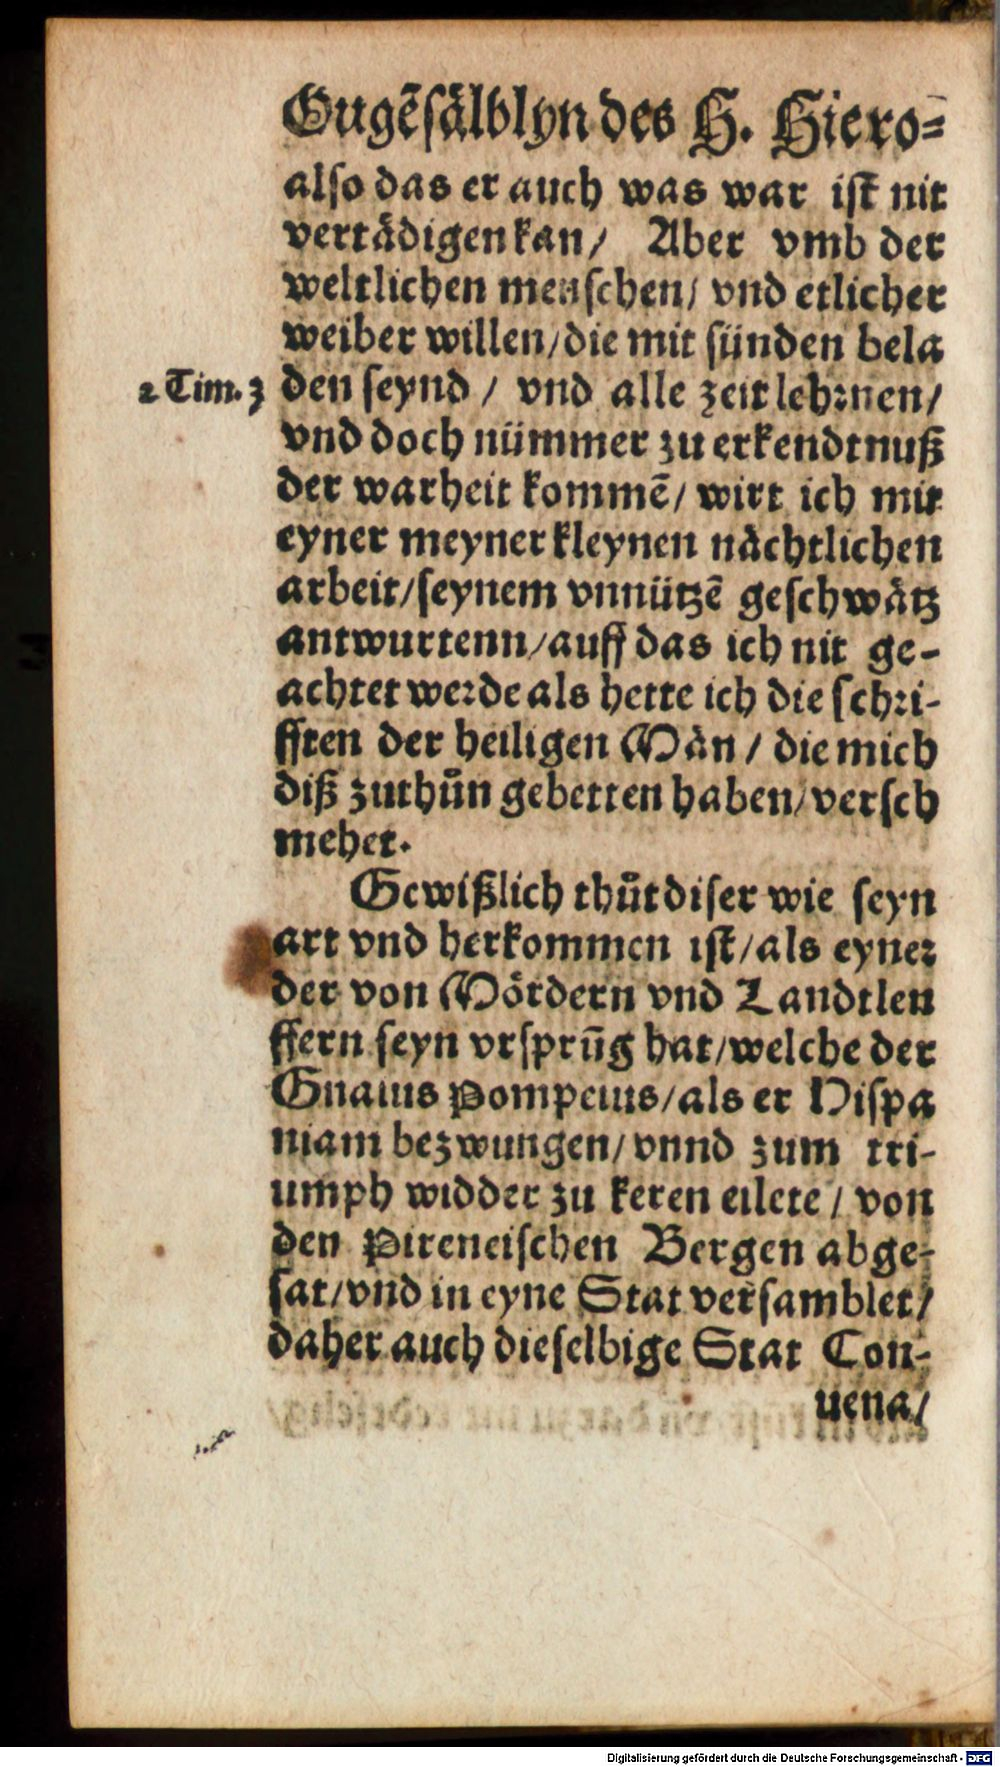 Gugẽsälblyn des H. Hiero=
also das er auch was war ist nit
vertädigen kan/ Aber vmb der
weltlichen menschen/ vnd etlicher
weiber willen/die mit sünden bela
2 Tim. 3 den seynd / vnd alle zeit lehrnen/
vnd doch nümmer zu erkendtnuß
der warheit kommẽ/ wirt ich mit
eyner meyner kleynen nächtlichen
arbeit/seynem vnnützẽ geschwätz
antwurtenn/auff das ich nit ge-
achtet werde als hette ich die schri-
fften der heiligen Män / die mich
diß zuthůn gebetten haben/versch
mehet.
Gewißlich thůt diser wie seyn
art vnd herkommen ist/als eyner
der von Mördern vnd Landtleu
ffern seyn vrsprũg hat/welche der
Gnaius Pompeius/als er Hispa
niam bezwungen/vnnd zum tri-
umph widder zu keren eilete / von
den Pireneischen Bergen abge-
sat/vnd in eyne Stat versamblet/
daher auch dieselbige Stat Con-
uena/
Digitalisierung gefördert durch die Deutsche Forschungsgemeinschaft - DFG